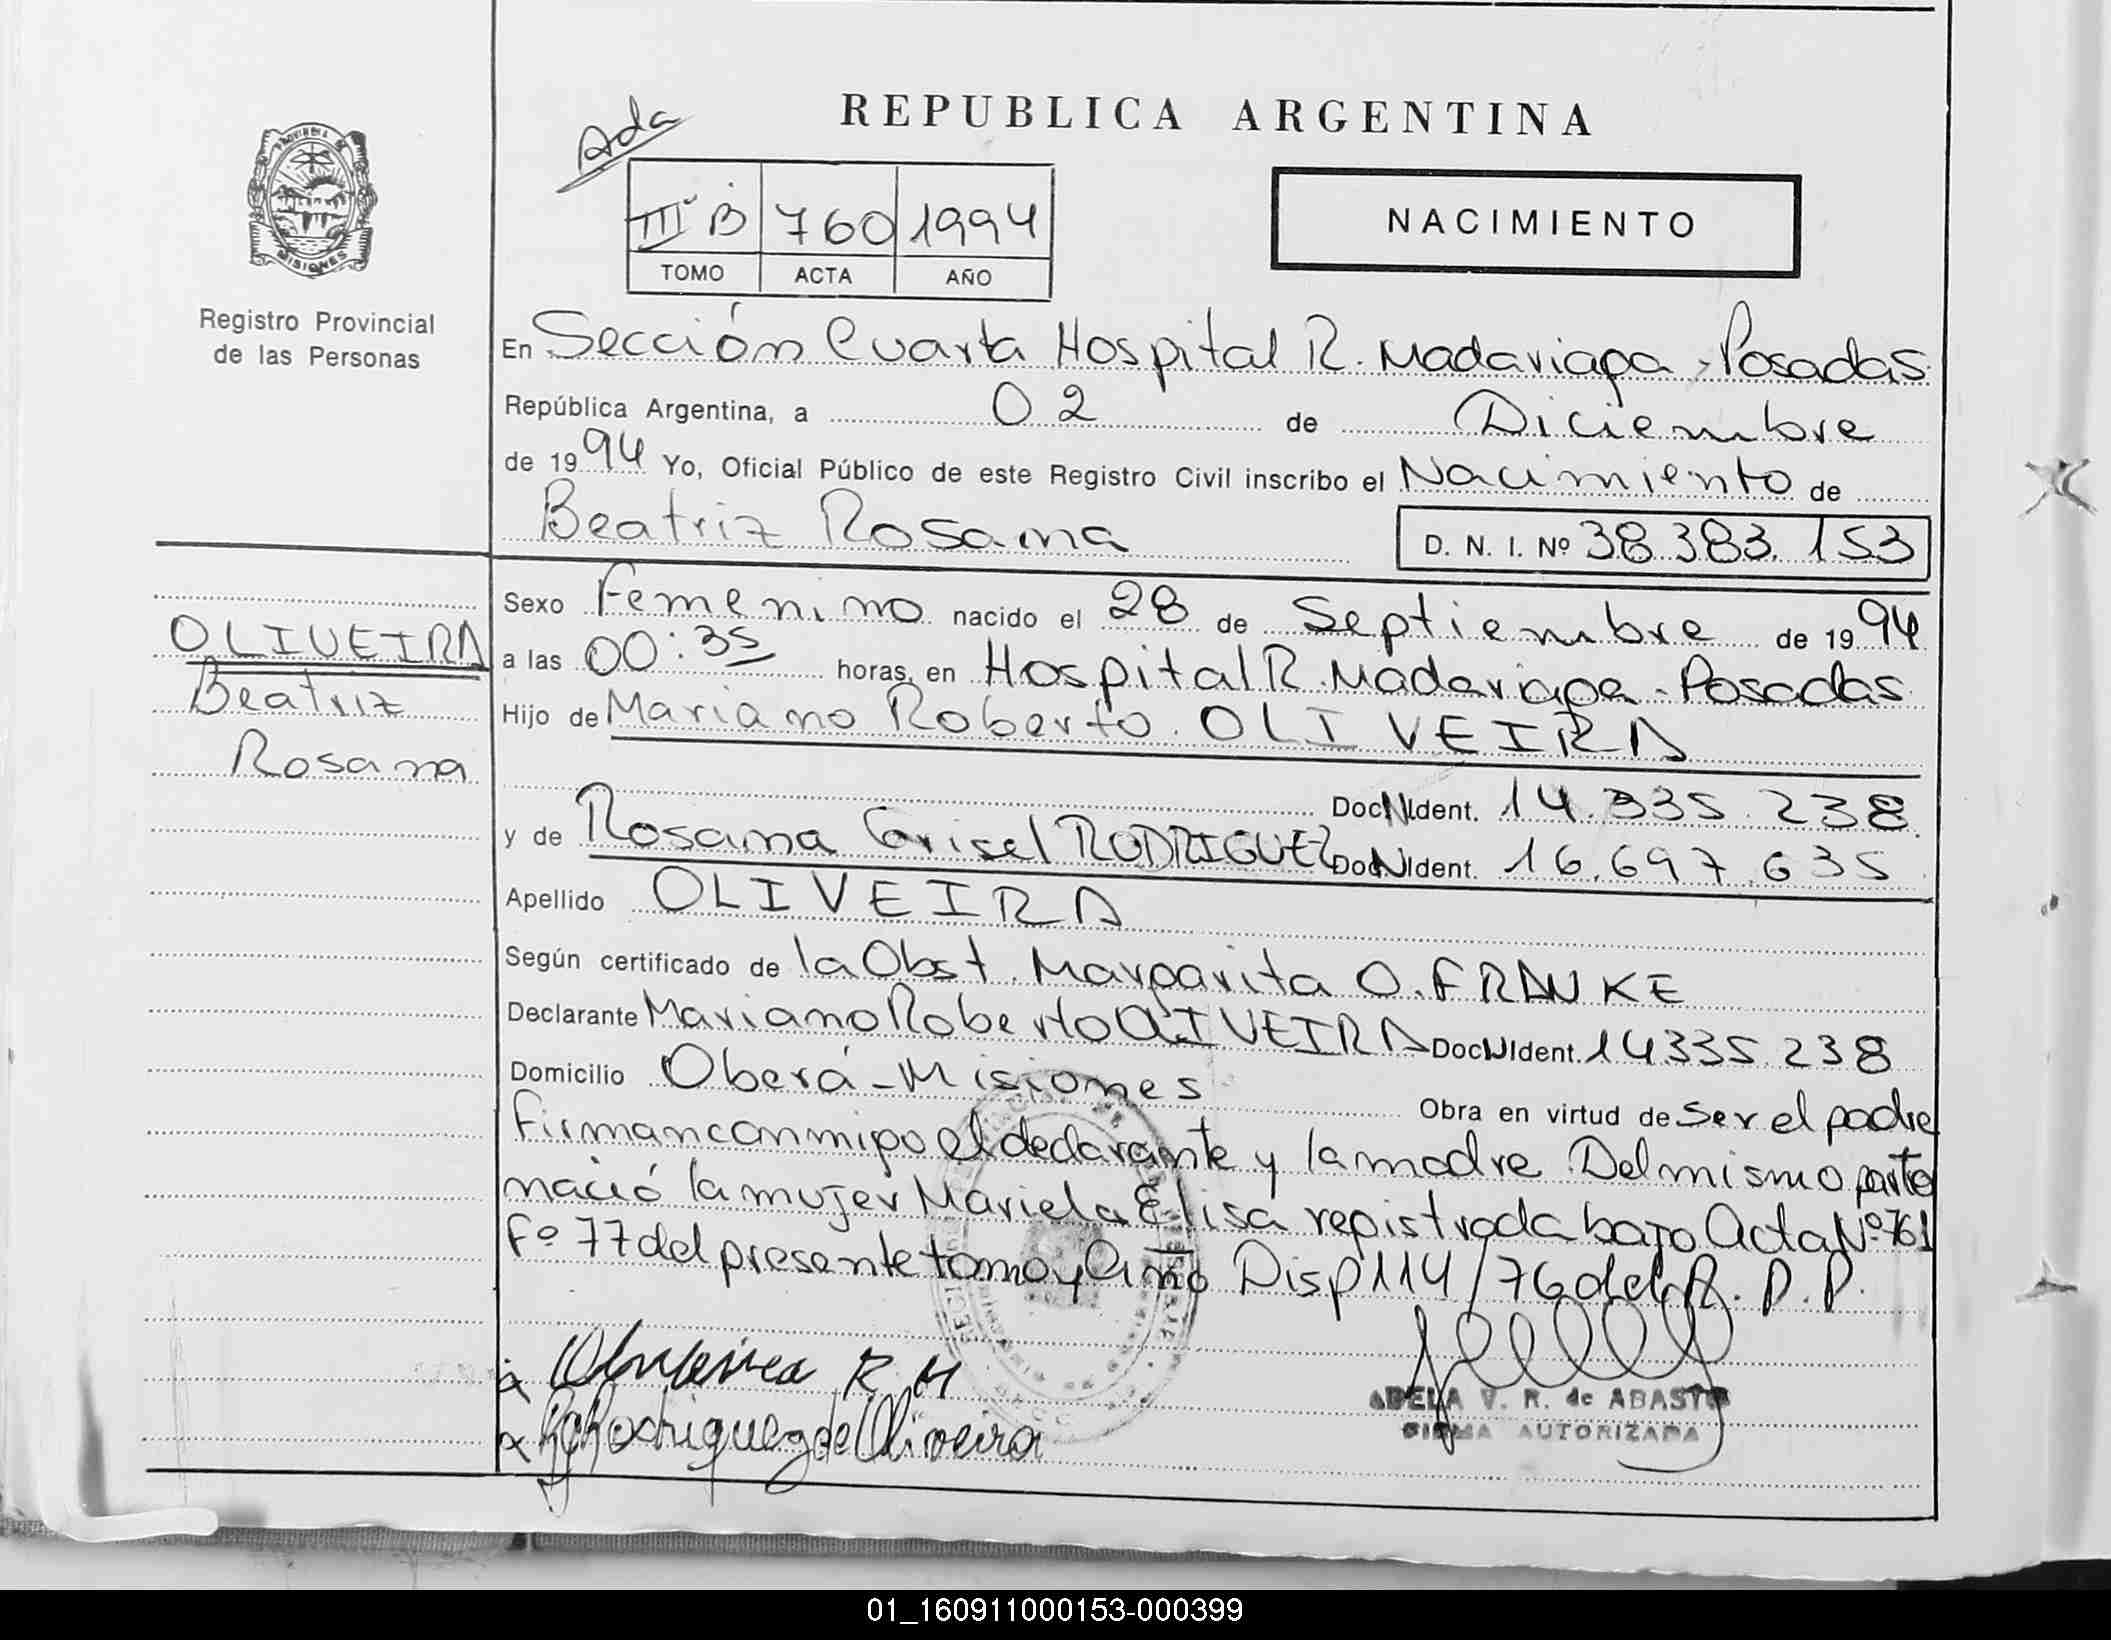 REPUBLICA ARGENTINA
Ada
III B 760 1994
TOMO ACTA AÑO
NACIMIENTO
PROVINCIA
MISIONES
Registro Provincial
de las Personas
En Sección Cuarta Hospital R. Madariaga, Posadas
República Argentina, a 02 de Diciembre
de 1994 Yo, Oficial Público de este Registro Civil inscribo el Nacimiento de
Beatriz Rosana D. N. I. Nº 38.383.153
OLIVEIRA
Beatriz
Rosana
Sexo Femenino nacido el 28 de Septiembre de 1994
a las 00:35 horas, en Hospital R. Madariaga - Posadas
Hijo de Mariano Roberto OLIVEIRA
Doc N Ident. 14.335.238
y de Rosana Grisel RODRIGUEZ Doc N Ident. 16.697.635
Apellido OLIVEIRA
Según certificado de la Obst. Margarita O. FRANKE
Declarante Mariano Roberto OLIVEIRA Doc N Ident. 14.335.238
Domicilio Oberá - Misiones
Obra en virtud de ser el padre
firman conmigo el declarante y la madre Del mismo parto
nació la mujer Mariela Elisa registrada bajo Acta Nº 761
Fº 77 del presente tomo y Año Disp 114/76 del R. P. P.
x Oliveira R M
x R G Rodriguez de Oliveira
ADELA V. R. de ABASTO
FIRMA AUTORIZADA
01_160911000153-000399